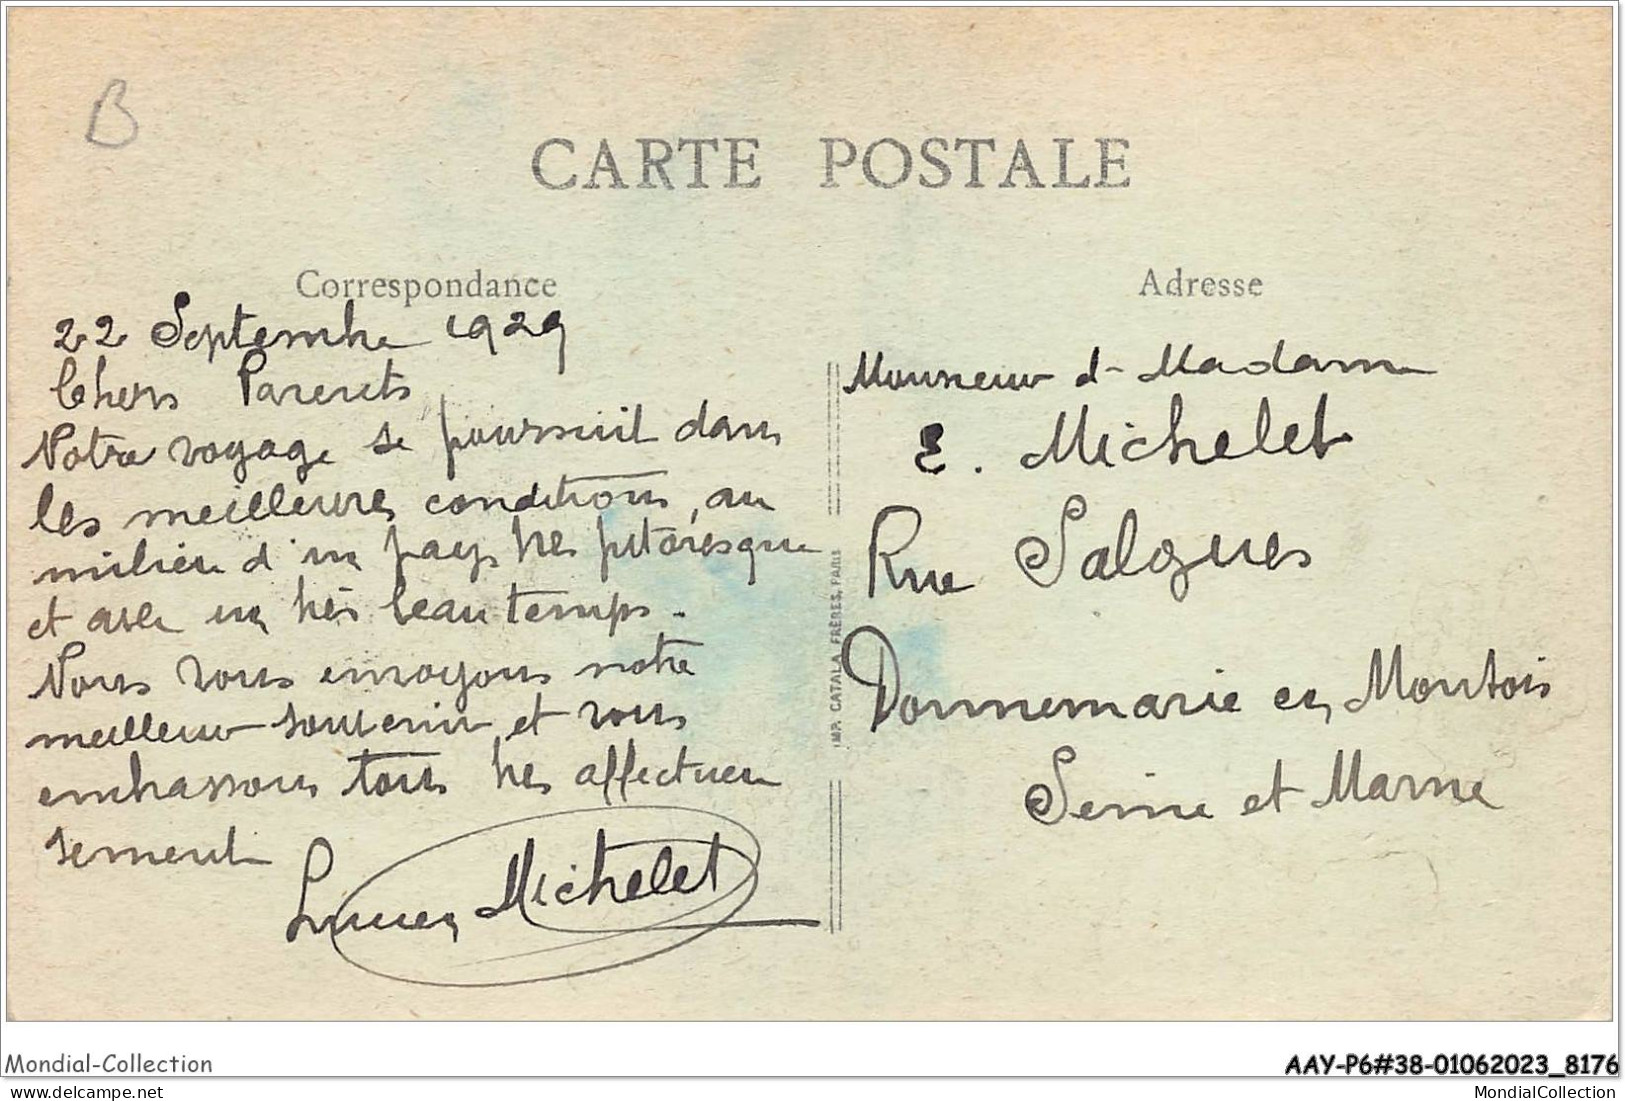 B
CARTE POSTALE
Correspondance
22 Septembre 1929
Chers Parents
Notre voyage se poursuit dans
les meilleures conditions, au
milieu d'un pays très pitoresque
et avec un très beau temps.
Nous vous envoyons notre
meilleur souvenir et vous
embrassons tous très affectueu
sement
Lucien Michelet
IMP. CATALA FRÈRES, PARIS
Adresse
Monsieur & Madame
E. Michelet
Rue Salogues
Donnemarie en Montois
Seine et Marne
Mondial-Collection
AAY-P6#38-01062023_8176
delcampe.net
MondialCollection